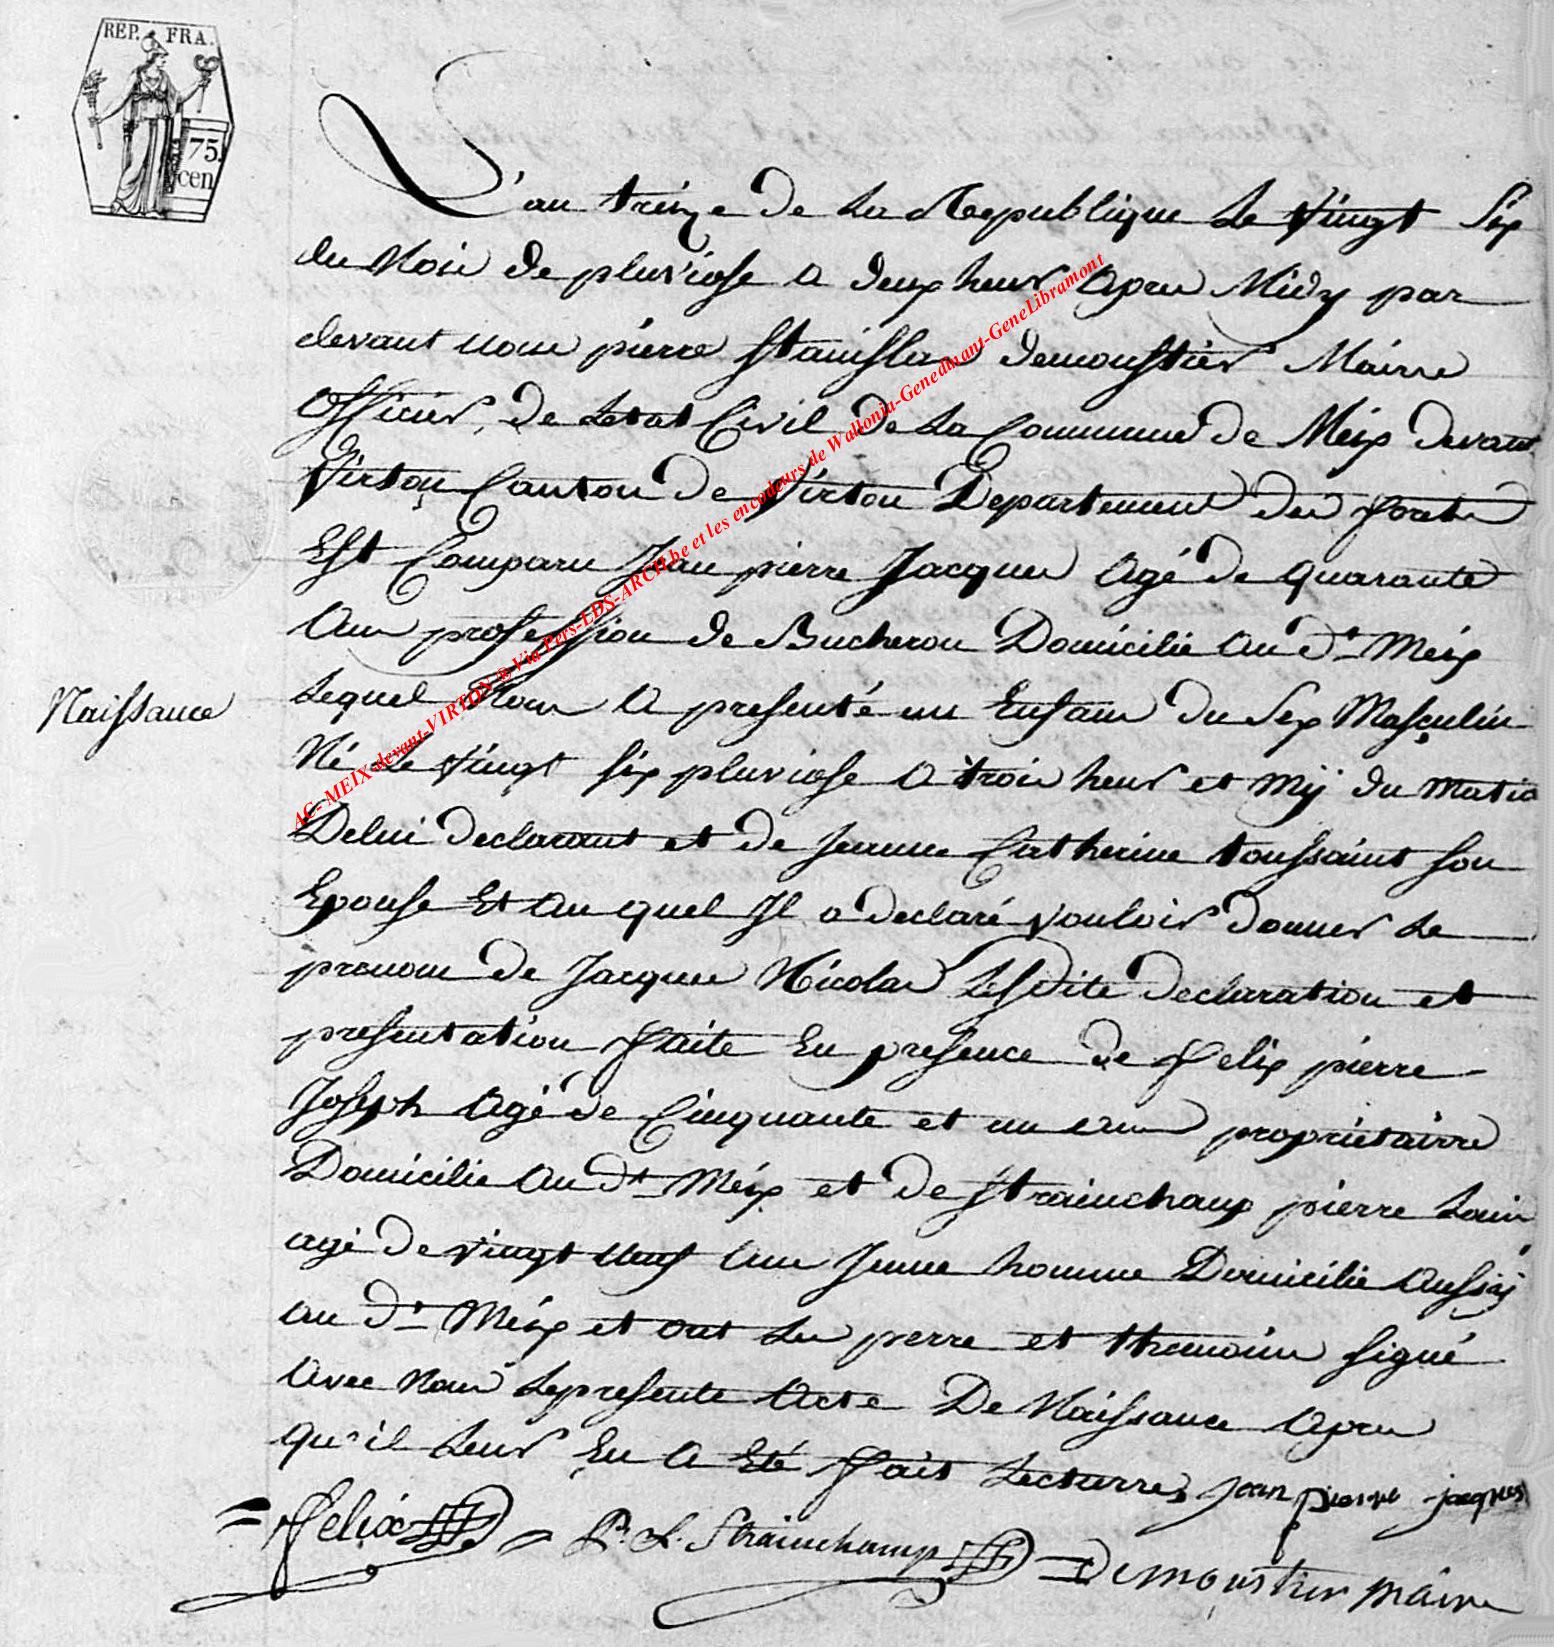 REP. FRA.
75.
cen
L'an treize de La Republique Le Vingt Six
du Mois de pluviose a deux heur Apres Midy par
devant nous pierre Stanislas demoustier Mairre
Officier de Letat Civil de La Commune de Meix devant
Virton Canton de Virton Departement des forets
Est Comparu Jean pierre Jacques Agé de quarante
Ans profession de Bucheron Domicilié Au dt Meix
Lequel Nous A presenté un Enfant du Sex Masculin
Naissance
Né Le Vingt six pluviose A trois heur et My du Matin
De lui declarant et de Jeanne Catherine toussaint son
Epouse Et Au quel Il a declaré vouloir donner Le
prenom de Jacques Nicolas Lesdite declaration et
presentation faite En presence de felix pierre
Joseph Agé de Cinquante et un ans proprietairre
Domicilié Au dt Meix et de strainchamp pierre Louis
agé de vingt neuf Ans Jeune homme Domicilié Aussy
au dt Meix et ont Les perre et themoins signé
Avec Nous Lepresente Acte De Naissance Apres
qu'il Leur En A Eté fait Lecturre, jean pierre jacques
felix P. L. Strainchamp Demoustier maire
AC- MEIX-devant-VIRTON ® Via Pers-EDS-ARCH.be et les encodeurs de Wallonia-Genedinant-GeneLibramont